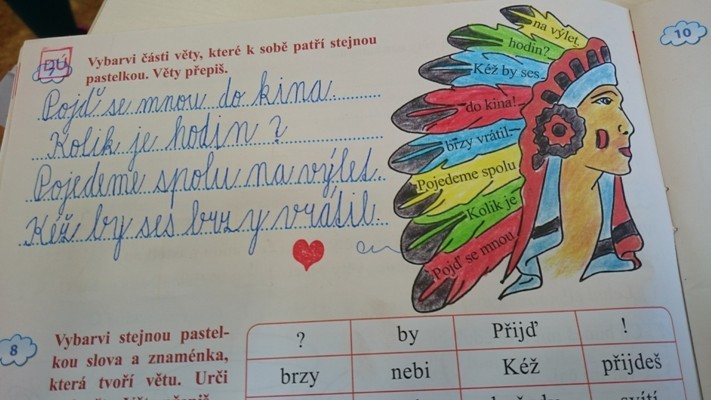 DÚ
7
Vybarvi části věty, které k sobě patří stejnou
pastelkou. Věty přepiš.
Pojď se mnou do kina.
Kolik je hodin?
Pojedeme spolu na výlet.
Kéž by ses brzy vrátil.
na výlet.
hodin?
Kéž by ses
do kina!
brzy vrátil.
Pojedeme spolu
Kolik je
Pojď se mnou
10
8
Vybarvi stejnou pastel-
kou slova a znaménka,
která tvoří větu. Urči
? by Přijď !
brzy nebi Kéž přijdeš
svítí